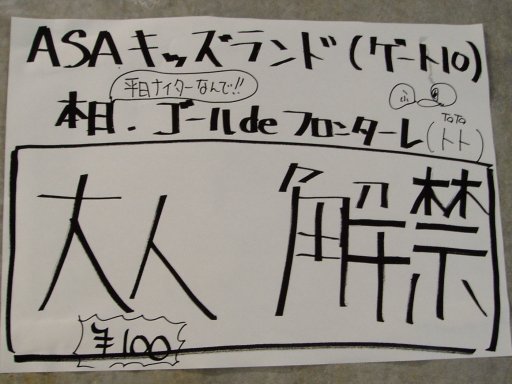 ASAキッズランド(ゲート10)
平日ナイターなんで!!
本日.ゴールdeフロンターレ
TOTO
(トト)
大人 解禁
¥100